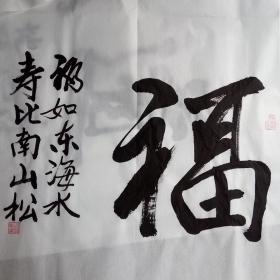 福
福如东海水
寿比南山松